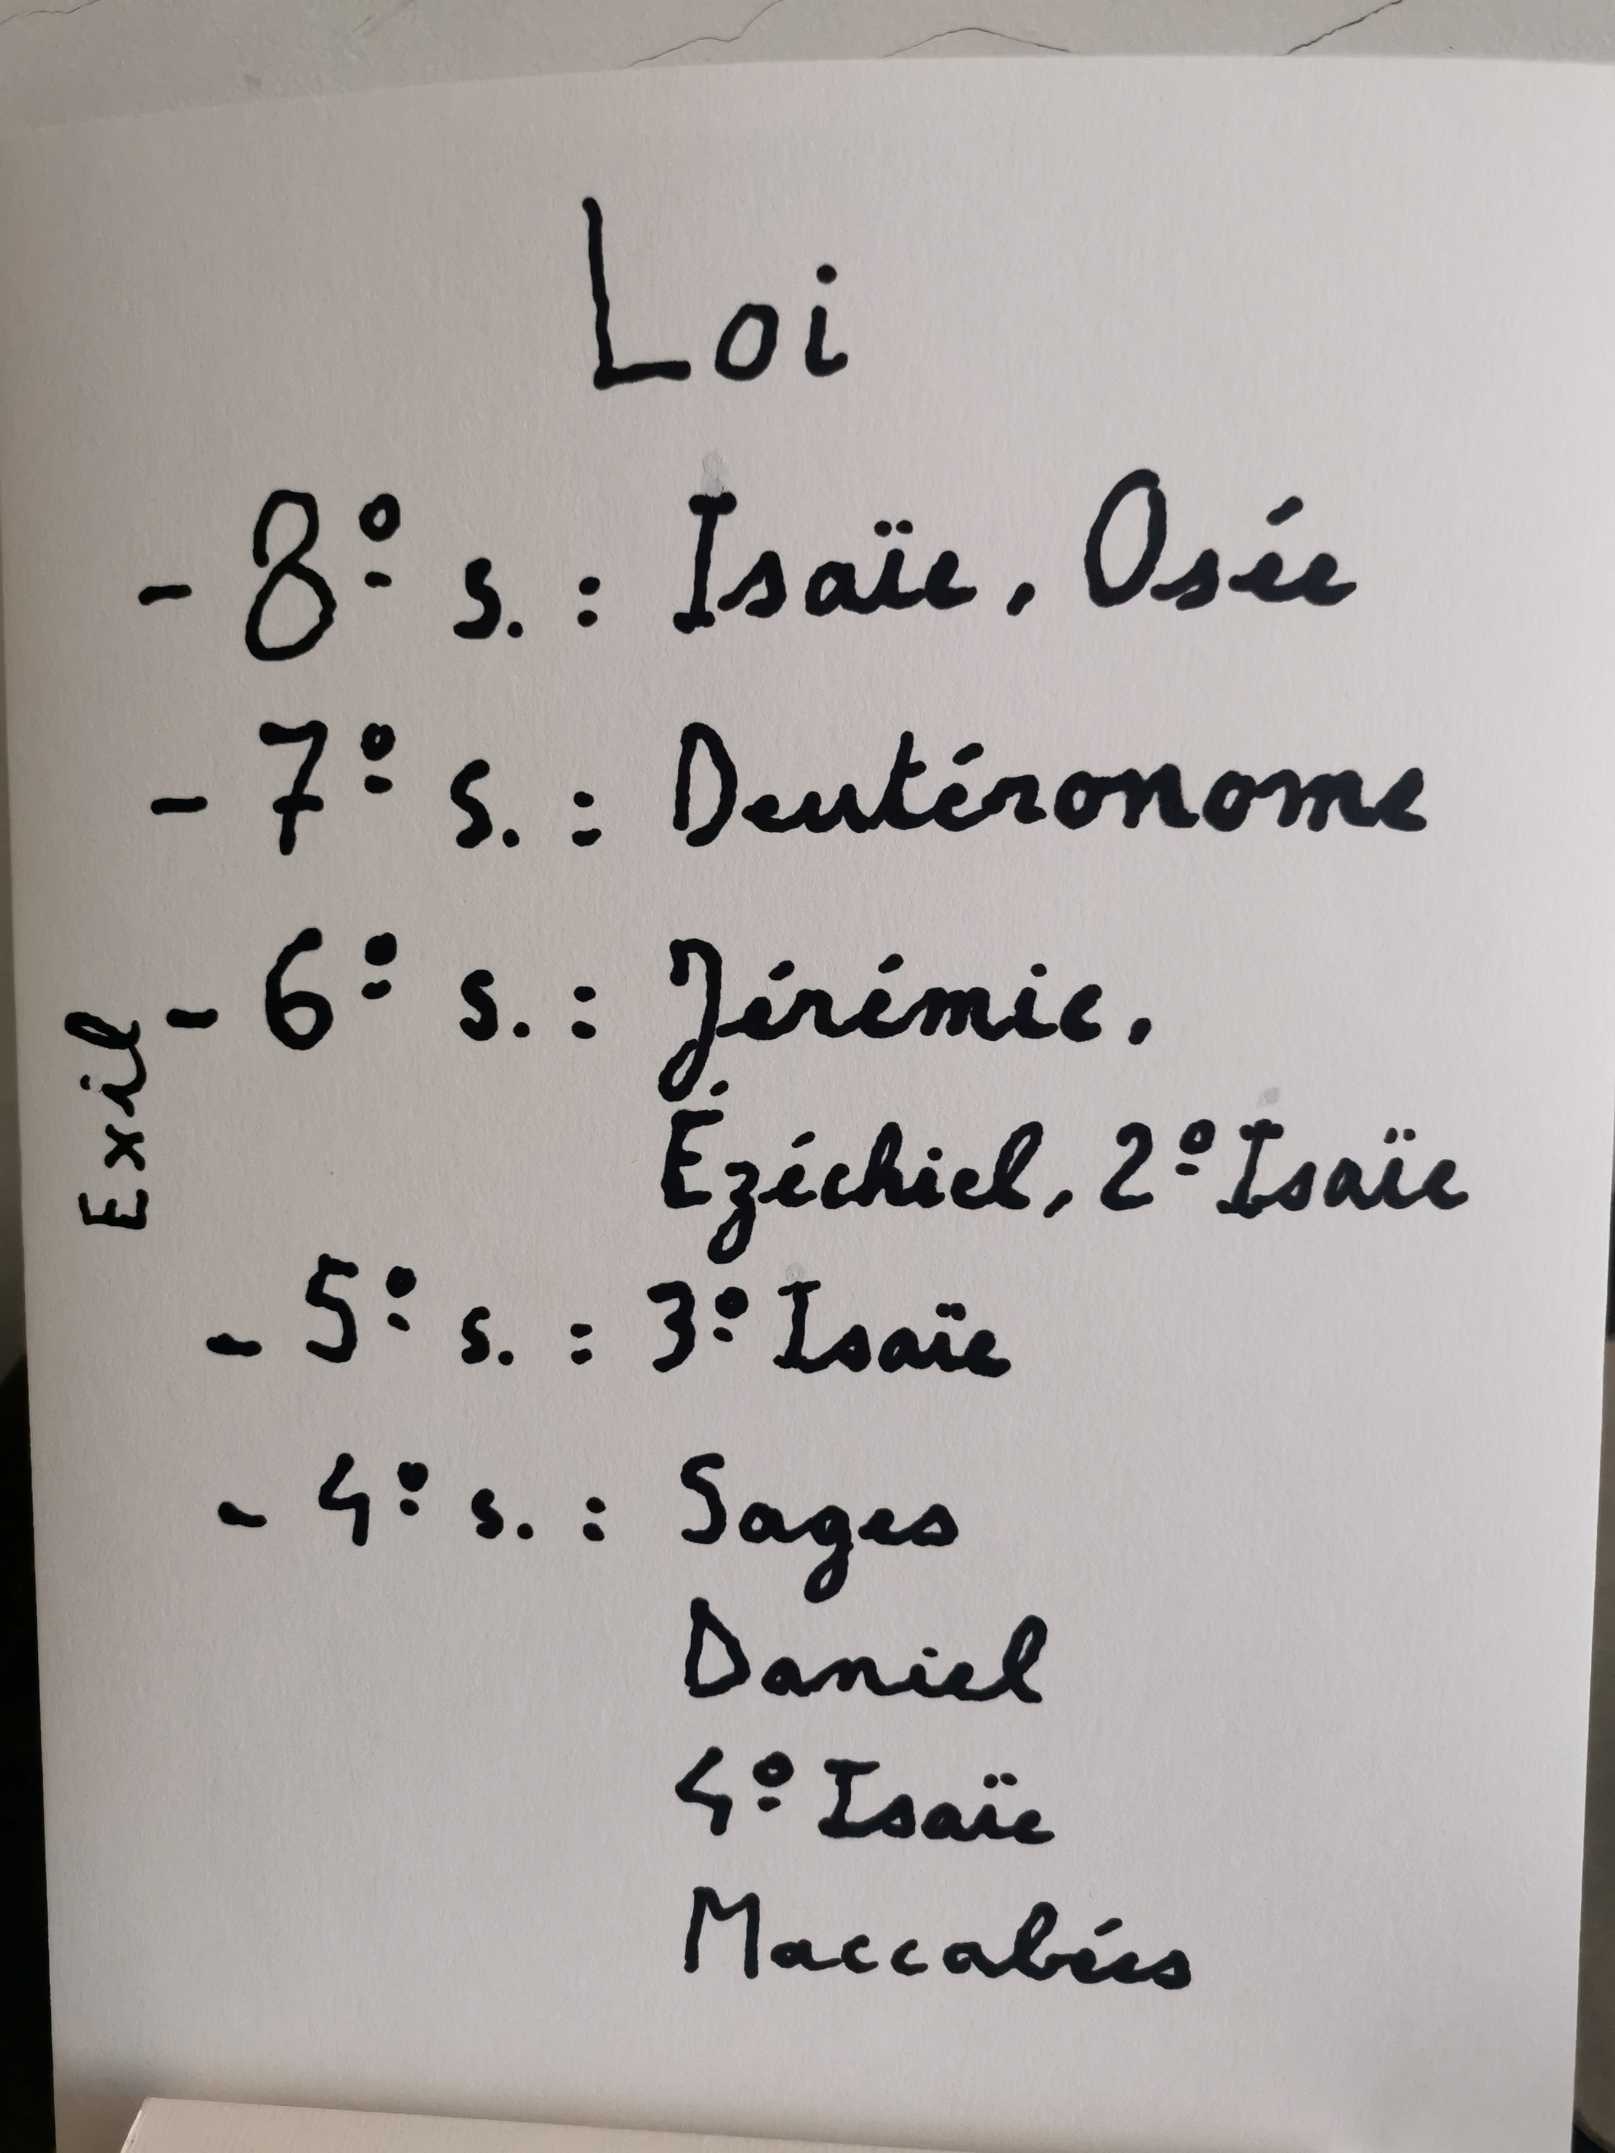 Loi
- 8º s. : Isaïe, Osée
- 7º s. : Deutéronome
Exil
- 6º s. : Jérémie,
Ézéchiel, 2º Isaïe
- 5º s. : 3º Isaïe
- 4º s. : Sages
Daniel
4º Isaïe
Maccabées